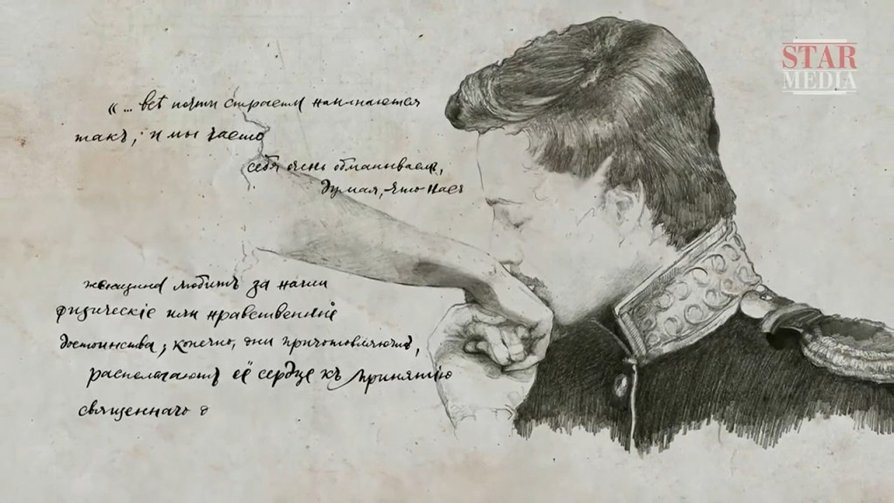 STAR
MEDIA
«... всѣ почти страсти начинаются
такъ, и мы часто
себя очень обманываемъ,
думая, что насъ
женщина любитъ за наши
физическіе или нравственныѣ
достоинства; конечно, они приготовляютъ,
располагаютъ её сердце къ принятію
священнаго о